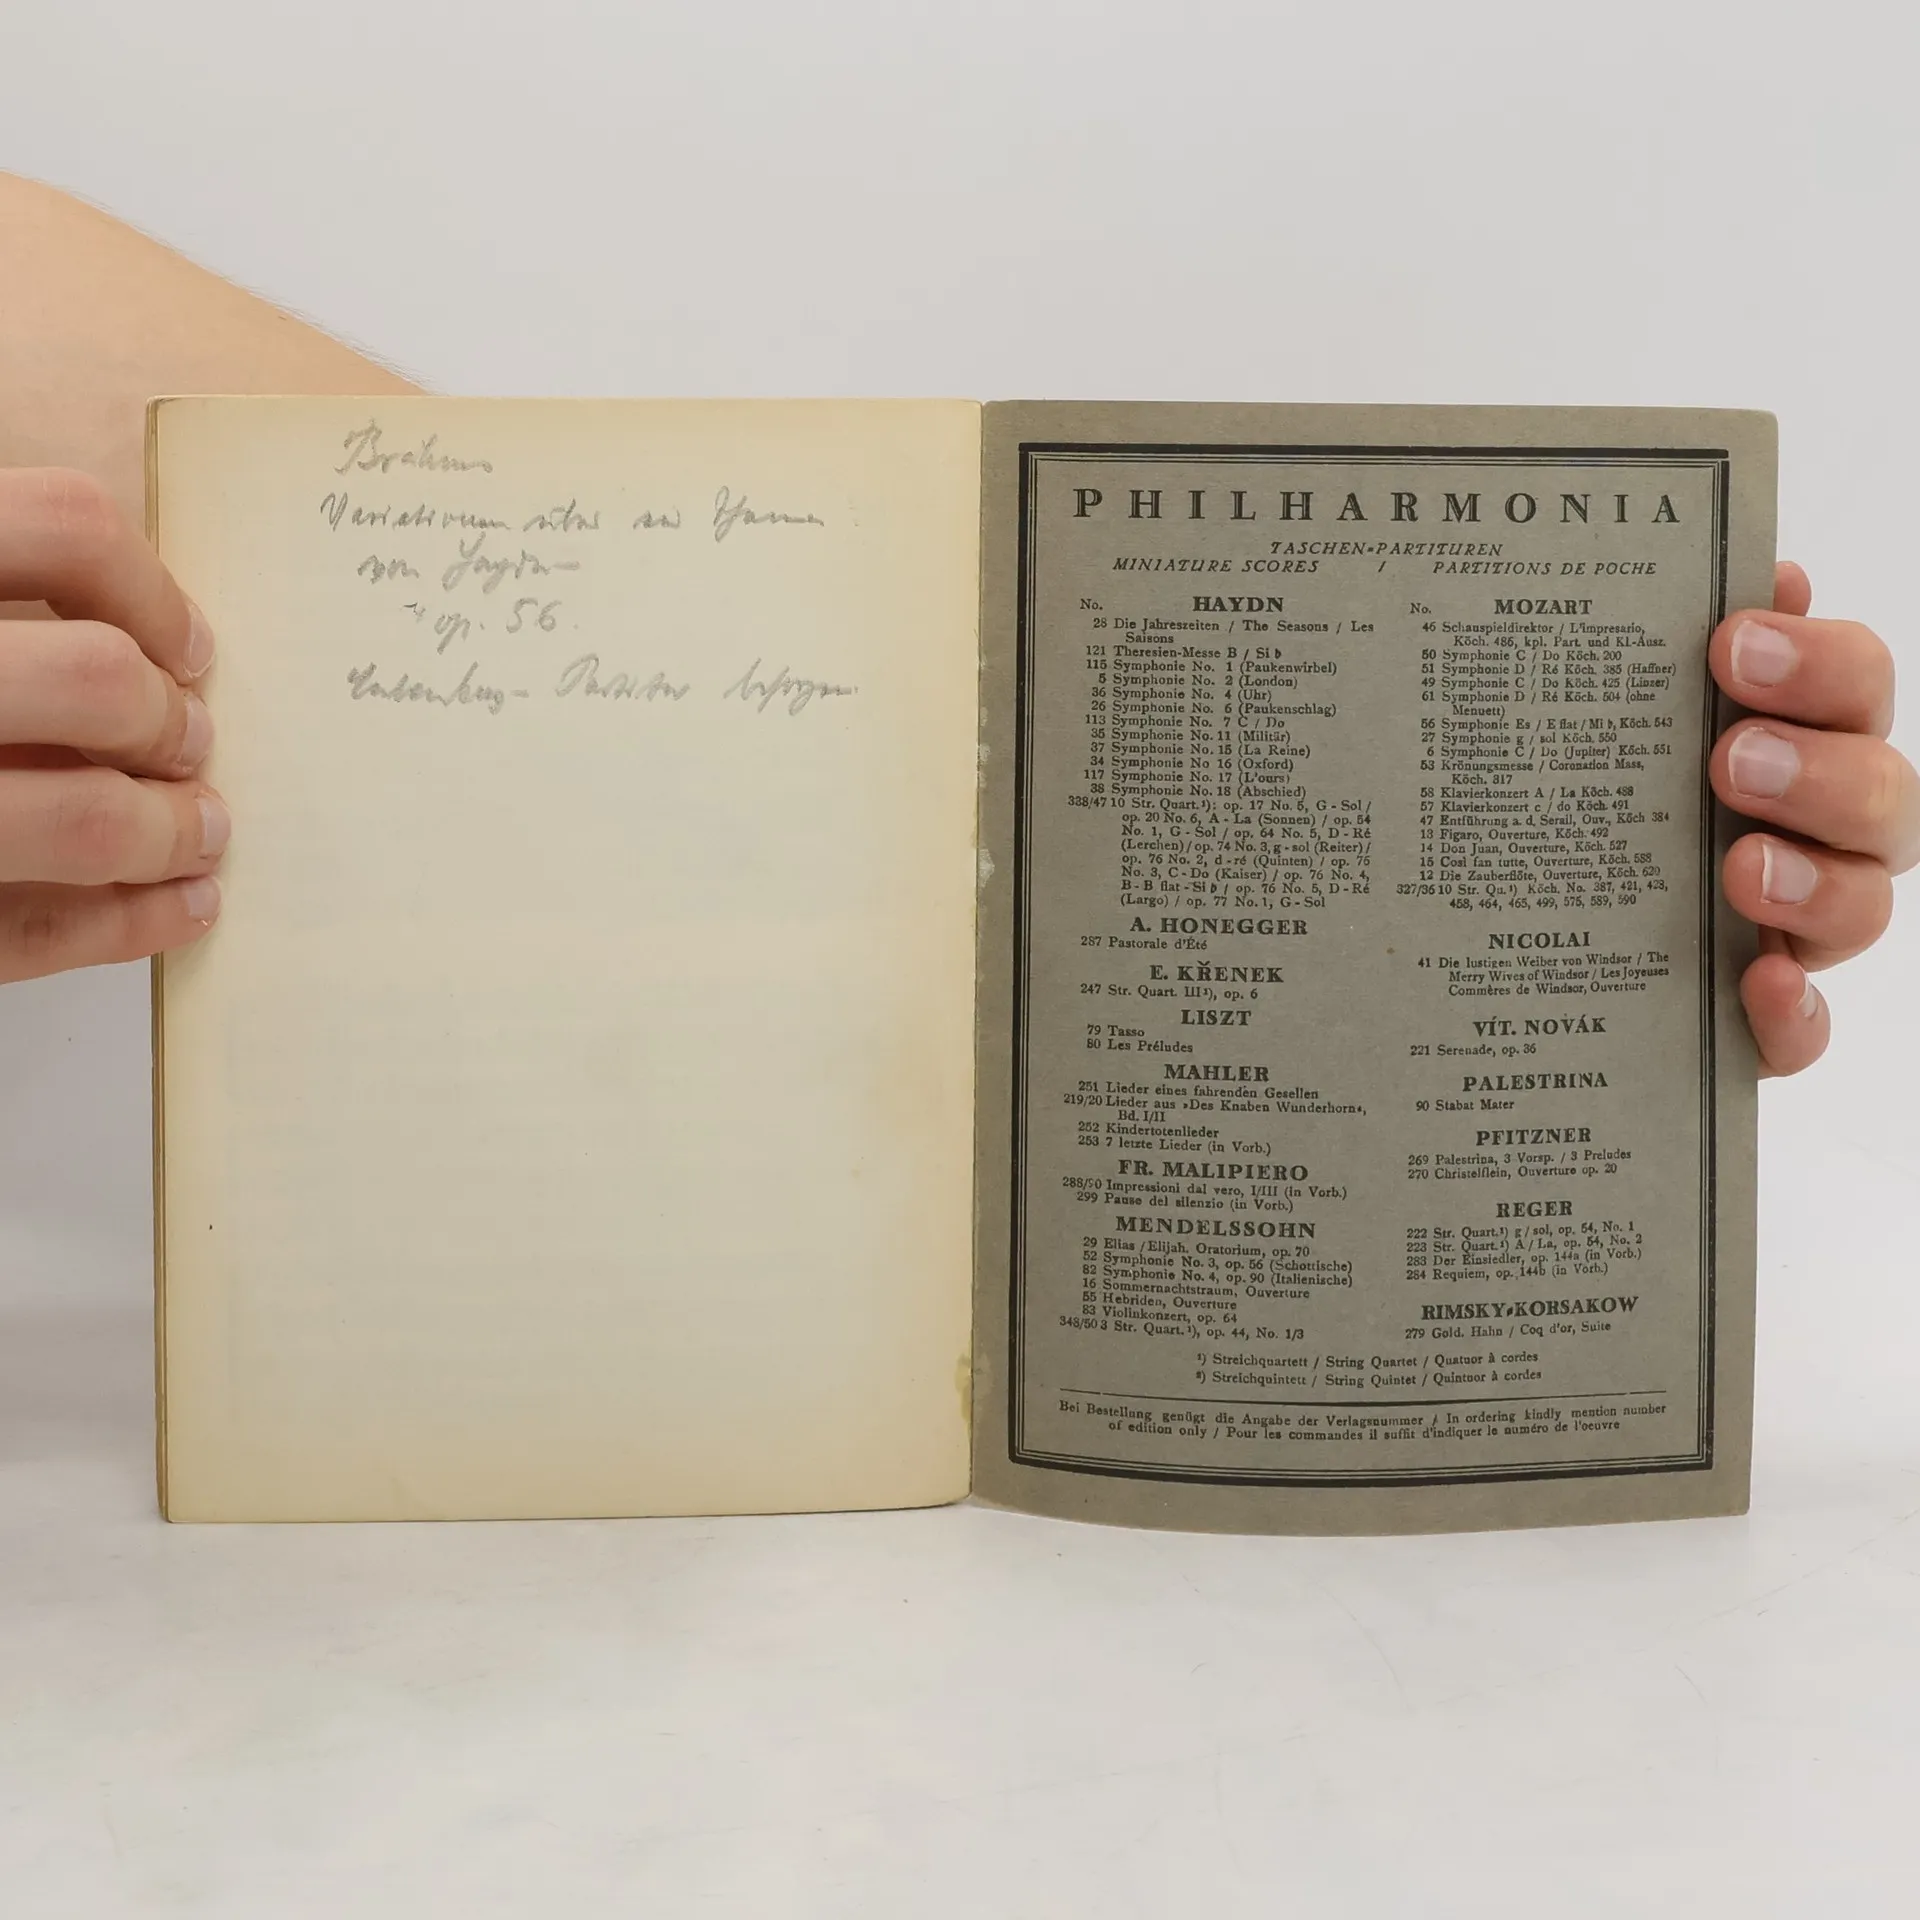 Brahms
Variationen über ein Thema
von Haydn
op. 56
Partitur besorgen
PHILHARMONIA
TASCHEN-PARTITUREN
MINIATURE SCORES / PARTITIONS DE POCHE
No. HAYDN
28 Die Jahreszeiten / The Seasons / Les
Saisons
121 Theresien-Messe B / Si ♭
115 Symphonie No. 1 (Paukenwirbel)
5 Symphonie No. 2 (London)
36 Symphonie No. 4 (Uhr)
26 Symphonie No. 6 (Paukenschlag)
113 Symphonie No. 7 C / Do
35 Symphonie No. 11 (Militär)
37 Symphonie No. 15 (La Reine)
34 Symphonie No 16 (Oxford)
117 Symphonie No. 17 (L'ours)
38 Symphonie No. 18 (Abschied)
338/47 10 Str. Quart.¹): op. 17 No. 5, G - Sol /
op. 20 No. 6, A - La (Sonnen) / op. 54
No. 1, G - Sol / op. 64 No. 5, D - Ré
(Lerchen) / op. 74 No. 3, g - sol (Reiter) /
op. 76 No. 2, d - ré (Quinten) / op. 76
No. 3, C - Do (Kaiser) / op. 76 No. 4,
B - B flat - Si ♭ / op. 76 No. 5, D - Ré
(Largo) / op. 77 No. 1, G - Sol
A. HONEGGER
287 Pastorale d'Été
E. KŘENEK
247 Str. Quart. III¹), op. 6
LISZT
79 Tasso
80 Les Préludes
MAHLER
251 Lieder eines fahrenden Gesellen
219/20 Lieder aus »Des Knaben Wunderhorn«,
Bd. I/II
252 Kindertotenlieder
253 7 letzte Lieder (in Vorb.)
FR. MALIPIERO
288/90 Impressioni dal vero, I/III (in Vorb.)
299 Pause del silenzio (in Vorb.)
MENDELSSOHN
29 Elias / Elijah, Oratorium, op. 70
52 Symphonie No. 3, op. 56 (Schottische)
82 Symphonie No. 4, op. 90 (Italienische)
16 Sommernachtstraum, Ouverture
55 Hebriden, Ouverture
83 Violinkonzert, op. 64
348/50 3 Str. Quart.¹), op. 44, No. 1/3
No. MOZART
46 Schauspieldirektor / L'Impresario,
Köch. 486, kpl. Part. und Kl-Ausz.
50 Symphonie C / Do Köch. 200
51 Symphonie D / Ré Köch. 385 (Haffner)
49 Symphonie C / Do Köch. 425 (Linzer)
61 Symphonie D / Ré Köch. 504 (ohne
Menuett)
56 Symphonie Es / E flat / Mi ♭, Köch. 543
27 Symphonie g / sol Köch. 550
6 Symphonie C / Do (Jupiter) Köch. 551
53 Krönungsmesse / Coronation Mass,
Köch. 317
58 Klavierkonzert A / La Köch. 488
57 Klavierkonzert c / do Köch. 491
47 Entführung a. d. Serail, Ouv., Köch 384
13 Figaro, Ouverture, Köch. 492
14 Don Juan, Ouverture, Köch. 527
15 Cosi fan tutte, Ouverture, Köch. 588
12 Die Zauberflöte, Ouverture, Köch. 620
327/36 10 Str. Qu.¹) Köch. No. 387, 421, 428,
458, 464, 465, 499, 575, 589, 590
NICOLAI
41 Die lustigen Weiber von Windsor / The
Merry Wives of Windsor / Les Joyeuses
Commères de Windsor, Ouverture
VÍT. NOVÁK
221 Serenade, op. 36
PALESTRINA
90 Stabat Mater
PFITZNER
269 Palestrina, 3 Vorsp. / 3 Preludes
270 Christelflein, Ouverture op. 20
REGER
222 Str. Quart.¹) g / sol, op. 54, No. 1
223 Str. Quart.¹) A / La, op. 54, No. 2
283 Der Einsiedler, op. 144a (in Vorb.)
284 Requiem, op. 144b (in Vorb.)
RIMSKY-KORSAKOW
279 Gold. Hahn / Coq d'or, Suite
¹) Streichquartett / String Quartet / Quatuor à cordes
²) Streichquintett / String Quintet / Quintuor à cordes
Bei Bestellung genügt die Angabe der Verlagsnummer / In ordering kindly mention number
of edition only / Pour les commandes il suffit d'indiquer le numéro de l'oeuvre